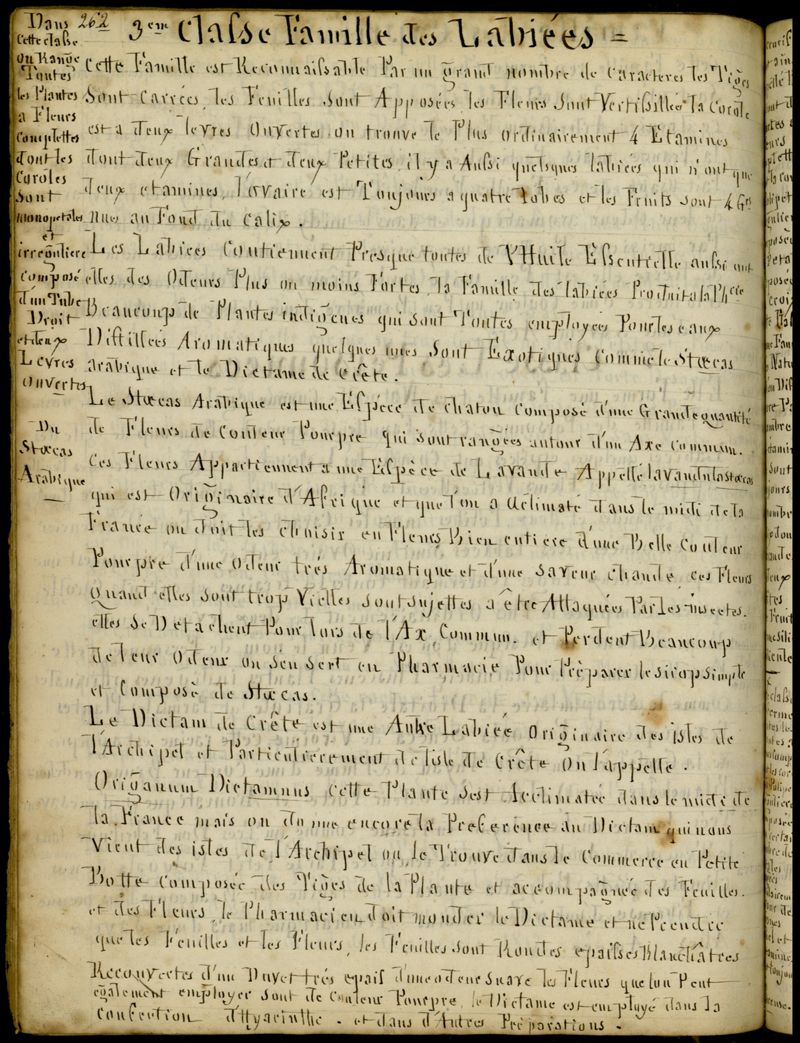 262
3eme Classe Famille des Labiées =
Cette Famille est Reconnaissable Par un grand nombre de Caracteres les Tiges
Sont Carrées, les Feuilles Sont Apposées les Fleurs Sont Vertissillée la Corole
est a deux levres Ouvertes on trouve le Plus ordinairement 4 Etamines
dont deux Grandes et deux Petites, il y a Aussi quelques labiées qui n'ont que
deux etamines, l'ovaire est Toujours a quatre lobes et les Fruits sont 4 Gr
Nues au Fond du Calix.
Les Labiées Contiennent Presque toutes de l'Huile Essentielle aussi ont
elles des Odeurs Plus ou moins Fortes, la Famille des labiées Produit a la Phcie
Beaucoup de Plantes indigenes qui sont Toutes employés Pour les eaux
Distillées Aromatiques quelques unes sont Exotiques Comme le Stœcas
arabique et le Dictame de Crête.
Le Stœcas Arabique est une Espéce de chaton Composé d'une Grande quantité
de Fleurs de Couleur Pourpre qui sont rangées autour d'un Axe Commun.
Ces Fleurs Appartiennent a une Espèce de Lavande Appellé lavandula Stœcas
qui est Originaire d'Afrique et que l'on a aclimaté dans le midi de la
France on doit les choisir en Fleurs Bien entiere d'une Belle Couleur
Pourpre d'une Odeur très Aromatique et d'une Saveur chaude ces Fleurs
Quand elles sont trop Vielles sont sujettes a être Attaquées Par les insectes.
elles Se Detachent Pour lors de l'Ax, Commun. et Perdent Beaucoup
de leur Odeur on s'en Sert en Pharmacie Pour Préparer le sirop simple
et Composé de Stœcas.
Le Dictam de Crête est une Autre Labiée Originaire des isles de
l'Archipel et Particulierement de l'isle de Crête On l'appelle.
Origanum Dictamnus, Cette Plante s'est Aclimatée dans le midi de
la France mais on donne encore la Preference au Dictam qui nous
Vient des isles de l'Archipel on le Trouve dans le Commerce en Petite
Botte Composée des Tiges de la Plante et accompagnée des Feuilles.
et des Fleurs, le Pharmacien doit monder le Dictame et ne Prendre
que les Feuilles et les Fleurs, les Feuilles sont Rondes epaisses Blanchâtres
Recouvertes d'un Duvet très epais d'une odeur Suave les Fleurs que l'on Peut
egalement employer sont de Couleur Pourpre, le Dictame est employé dans la
Confection d'Hyacinthe. et dans d'Autres Préparations.
Dans
Cette classe
On Range
Toutes
les Plantes
a Fleurs
Complettes
dont les
Coroles
Sont
monopetales
et
irreguliere
Composé
d'un Tube
Droit
et deux
Levres
Ouvertes
Du
Stœcas
Arabique